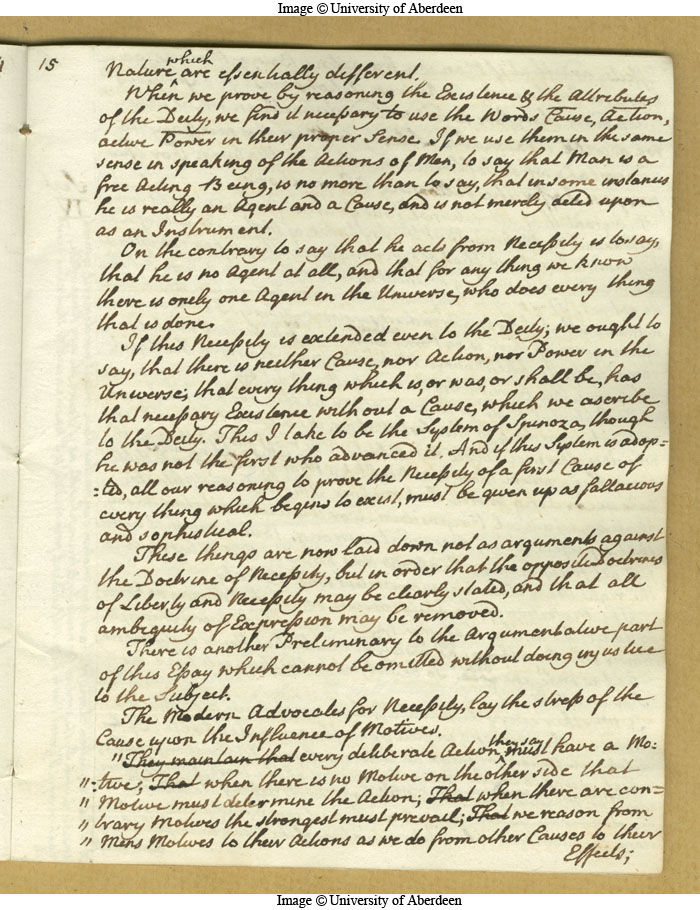 Image © University of Aberdeen
15
Nature which are essentially different.
When we prove by reasoning the Existence & the Attributes
of the Deity, we find it necessary to use the Words Cause, Action,
active Power in their proper Sense. If we use them in the same
sense in speaking of the Actions of Men, to say that Man is a
free Acting Being, is no more than to say, that in some instances
he is really an Agent and a Cause, and is not merely acted upon
as an Instrument.
On the contrary to say that he acts from Necessity is to say,
that he is no Agent at all, and that for any thing we know
there is onely one Agent in the Universe, who does every thing
that is done.
If this Necessity is extended even to the Deity; we ought to
say, that there is neither Cause, nor Action, nor Power in the
Universe; that every thing which is, or was, or shall be, has
that necessary Existence without a Cause, which we ascribe
to the Deity. This I take to be the System of Spinoza, though
he was not the first who advanced it. And if this System is adop=
=ted, all our reasoning to prove the Necessity of a first Cause of
every thing which begins to exist, must be given up as fallacious
and sophistical.
These things are now laid down not as arguments against
the Doctrine of Necessity, but in order that the opposite Doctrines
of Liberty and Necessity may be clearly stated, and that all
ambiguity of Expression may be removed.
There is another Preliminary to the Argumentative part
of this Essay which cannot be omitted without doing injustice
to the Subject.
The Modern Advocates for Necessity, lay the stress of the
Cause upon the Influence of Motives.
"They maintain that every deliberate Action, they say must have a Mo=
" =tive; That when there is no Motive on the other side that
" Motive must determine the Action; That when there are con=
" trary Motives the strongest must prevail; That we reason from
" Mens Motives to their Actions as we do from other Causes to their
Effects;
Image © University of Aberdeen